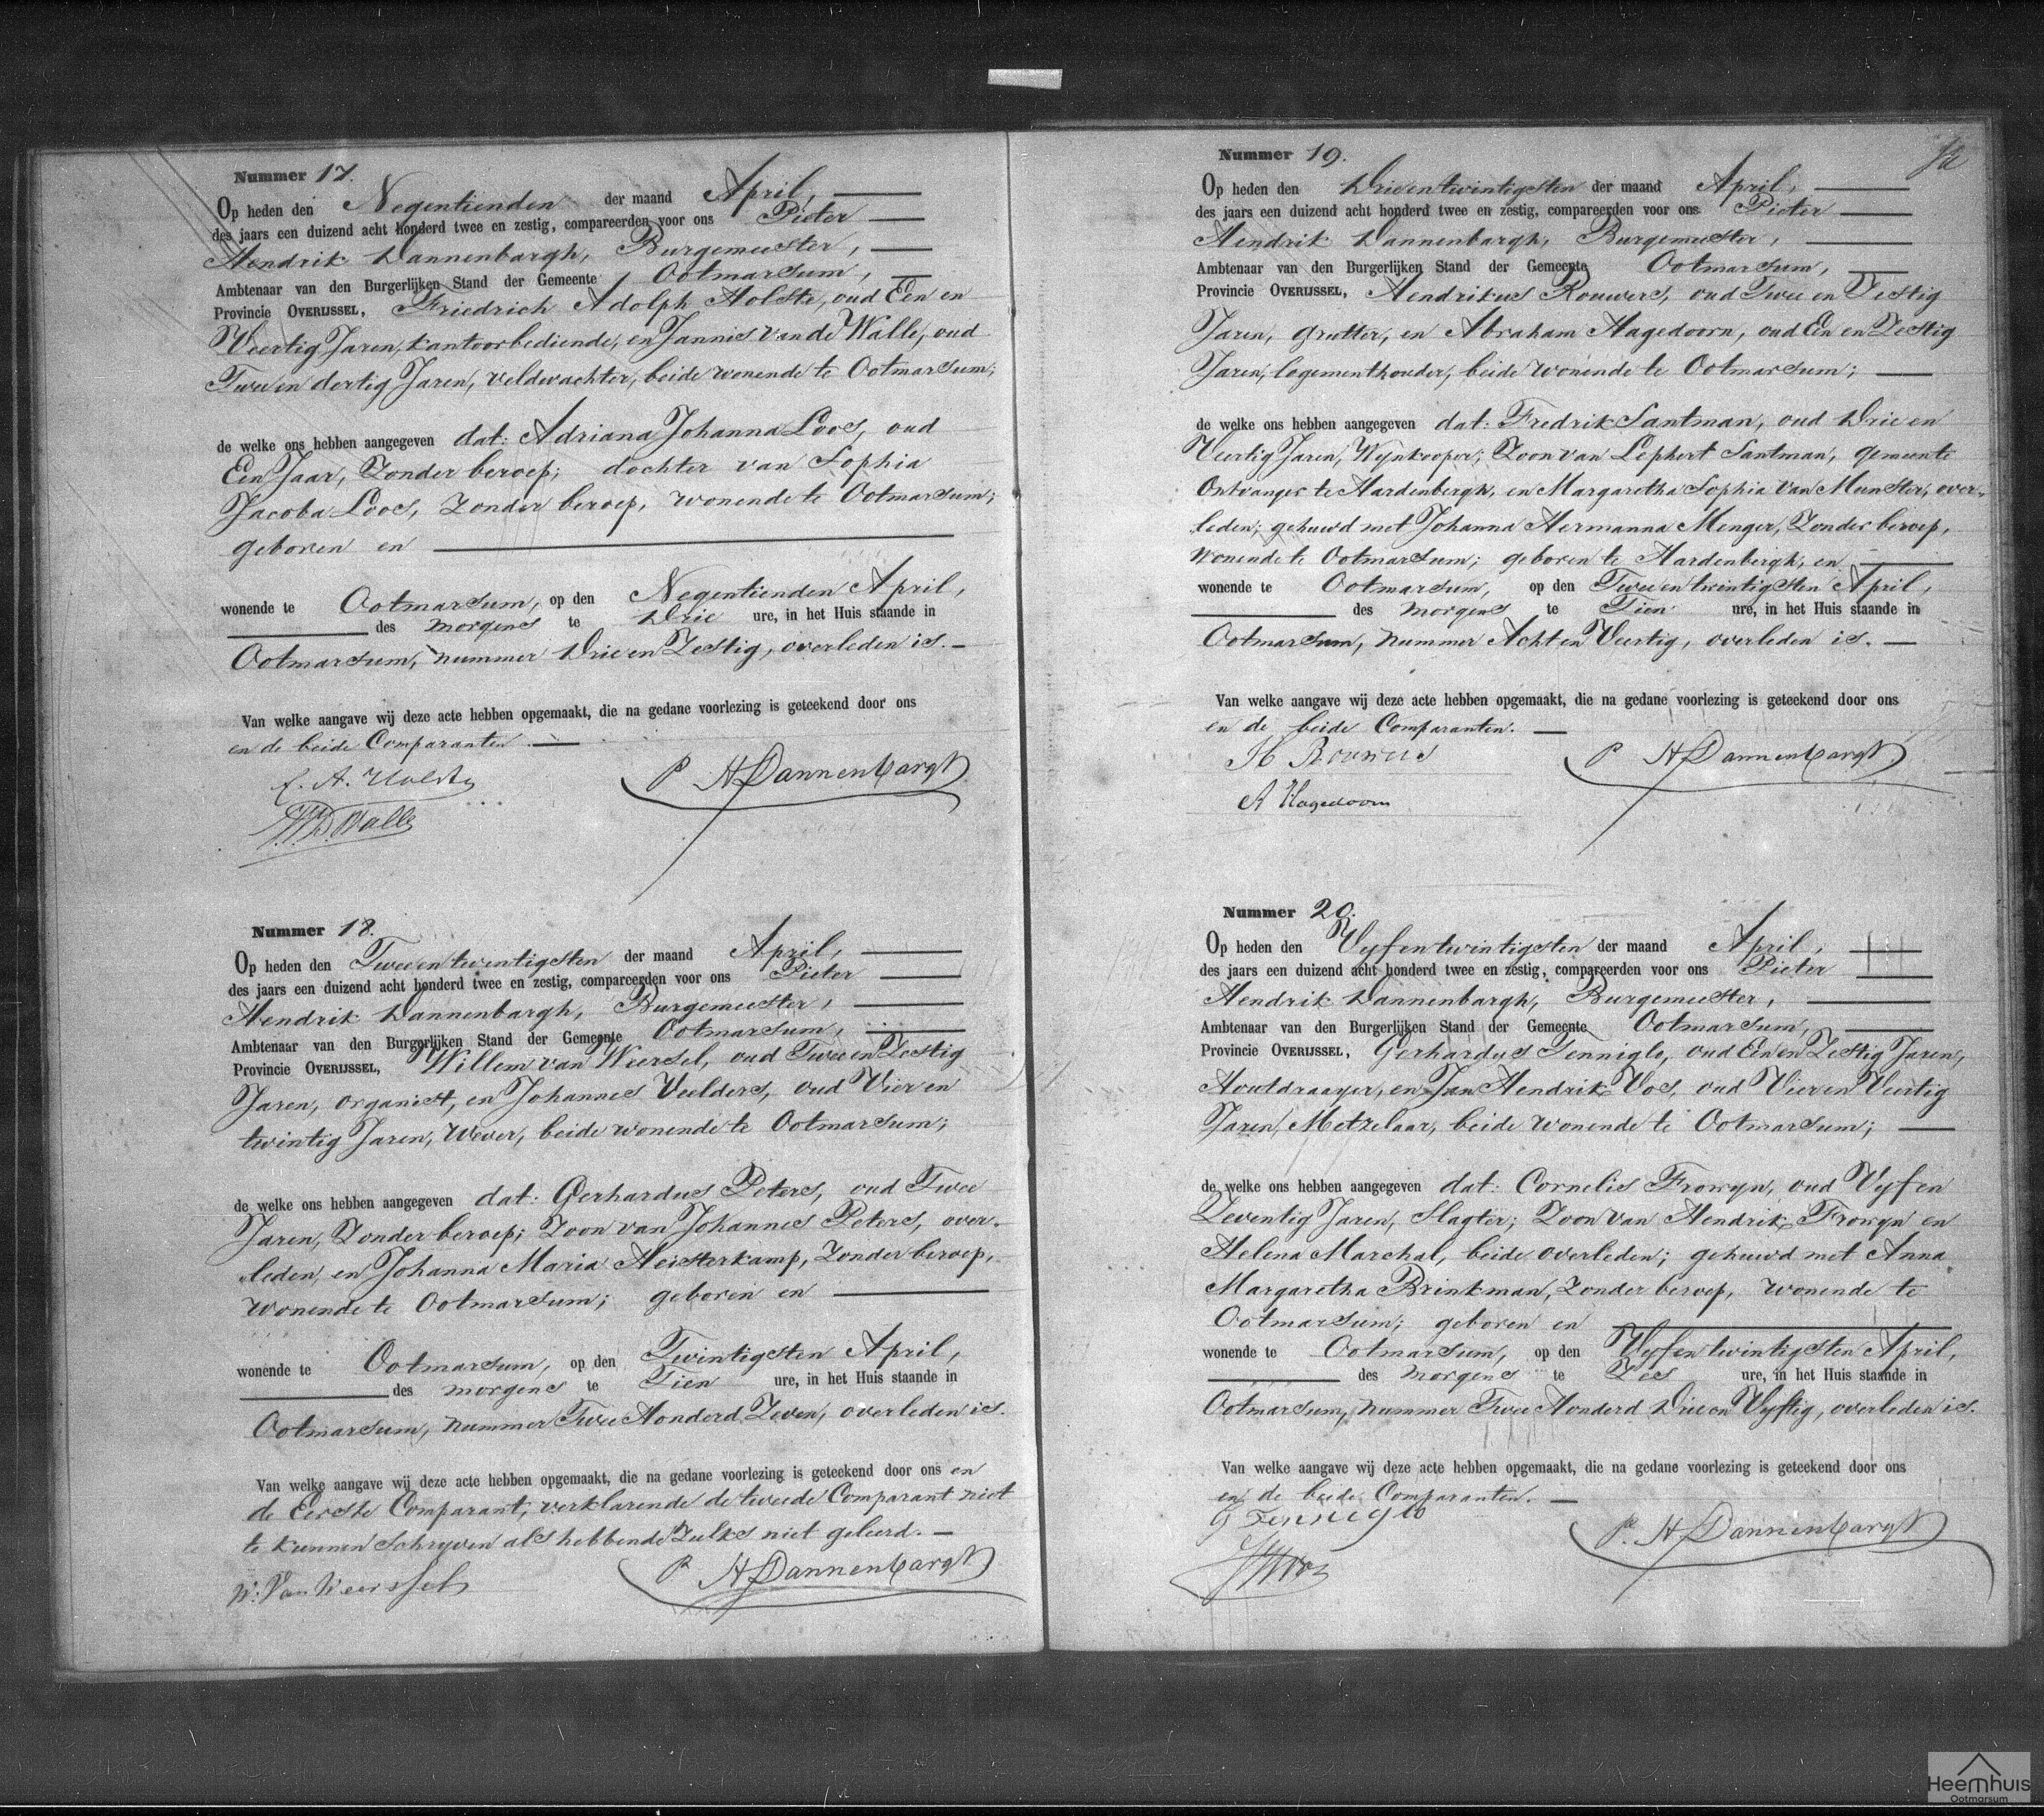 Nummer 17.
Op heden den Negentienden der maand April,
des jaars een duizend acht honderd twee en zestig, compareerden voor ons Pieter
Hendrik Dannenbargh, Burgemeester,
Ambtenaar van den Burgerlijken Stand der Gemeente Ootmarsum,
Provincie OVERIJSSEL, Friedrich Adolph Holste, oud Een en
Veertig Jaren, kantoorbediende, en Jannis van de Walle, oud
Twee en dertig Jaren, veldwachter, beide wonende te Ootmarsum;
de welke ons hebben aangegeven dat: Adriana Johanna Loos, oud
Een Jaar, Zonder beroep; dochter van Sophia
Jacoba Loos, Zonder beroep, wonende te Ootmarsum;
geboren en
wonende te Ootmarsum, op den Negentienden April,
des morgens te Drie ure, in het Huis staande in
Ootmarsum, nummer Drie en Zestig, overleden is.
Van welke aangave wij deze acte hebben opgemaakt, die na gedane voorlezing is geteekend door ons
en de beide Comparanten.
F. A. Holste P H Dannenbargh
Walle
Nummer 18.
Op heden den Twee en twintigsten der maand April,
des jaars een duizend acht honderd twee en zestig, compareerden voor ons Pieter
Hendrik Dannenbargh, Burgemeester,
Ambtenaar van den Burgerlijken Stand der Gemeente Ootmarsum,
Provincie OVERIJSSEL, Willem van Weersel, oud Twee en Zestig
Jaren, organist, en Johannes Velders, oud Vier en
twintig Jaren, Wever, beide wonende te Ootmarsum;
de welke ons hebben aangegeven dat: Gerhardus Peters, oud Twee
Jaren, Zonder beroep; Zoon van Johannes Peters, over-
leden, en Johanna Maria Heisterkamp, Zonder beroep,
Wonende te Ootmarsum; geboren en
wonende te Ootmarsum, op den Twintigsten April,
des morgens te Tien ure, in het Huis staande in
Ootmarsum, nummer Twee Honderd Zeven, overleden is.
Van welke aangave wij deze acte hebben opgemaakt, die na gedane voorlezing is geteekend door ons en
de Eerste Comparant, verklarende de tweede Comparant niet
te kunnen Schryven als hebbende Zulks niet geleerd.
W: Van Weerssel P H Dannenbargh
Nummer 19.
Op heden den Drie en twintigsten der maand April,
des jaars een duizend acht honderd twee en zestig, compareerden voor ons Pieter
Hendrik Dannenbargh, Burgemeester,
Ambtenaar van den Burgerlijken Stand der Gemeente Ootmarsum,
Provincie OVERIJSSEL, Hendrikus Rouwers, oud Twee en Zestig
Jaren, grutter, en Abraham Hagedoorn, oud Een en Zestig
Jaren, logementhouder, beide Wonende te Ootmarsum;
de welke ons hebben aangegeven dat: Fredrik Santman, oud Drie en
Veertig Jaren, Wynkooper; Zoon van Lephert Santman, gemeente
Ontvanger te Hardenbergh, en Margaretha Sophia van Munster, over-
leden; gehuwd met Johanna Hermanna Menger, Zonder beroep,
wonende te Ootmarsum; geboren te Hardenbergh, en
wonende te Ootmarsum, op den Twee en twintigsten April,
des morgens te Tien ure, in het Huis staande in
Ootmarsum, nummer Acht en Veertig, overleden is.
Van welke aangave wij deze acte hebben opgemaakt, die na gedane voorlezing is geteekend door ons
en de beide Comparanten.
H Rouwers P H Dannenbargh
A Hagedoorn
Nummer 20.
Op heden den Vyf en twintigsten der maand April,
des jaars een duizend acht honderd twee en zestig, compareerden voor ons Pieter
Hendrik Dannenbargh, Burgemeester,
Ambtenaar van den Burgerlijken Stand der Gemeente Ootmarsum,
Provincie OVERIJSSEL, Gerhardus Tenniglo, oud Een en Zestig Jaren,
Houtdraayer, en Jan Hendrik Vos, oud Vier en Veertig
Jaren, Metzelaar, beide wonende te Ootmarsum;
de welke ons hebben aangegeven dat: Cornelis Frowyn, oud Vyf en
Zeventig Jaren, Slagter; Zoon van Hendrik Frowyn en
Helena Marchal, beide overleden; gehuwd met Anna
Margaretha Brinkman, Zonder beroep, wonende te
Ootmarsum; geboren en
wonende te Ootmarsum, op den Vyf en twintigsten April,
des morgens te Zes ure, in het Huis staande in
Ootmarsum, nummer Twee Honderd Drie en Vyftig, overleden is.
Van welke aangave wij deze acte hebben opgemaakt, die na gedane voorlezing is geteekend door ons
en de beide Comparanten.
G Tenniglo P. H Dannenbargh
Heemhuis
Ootmarsum